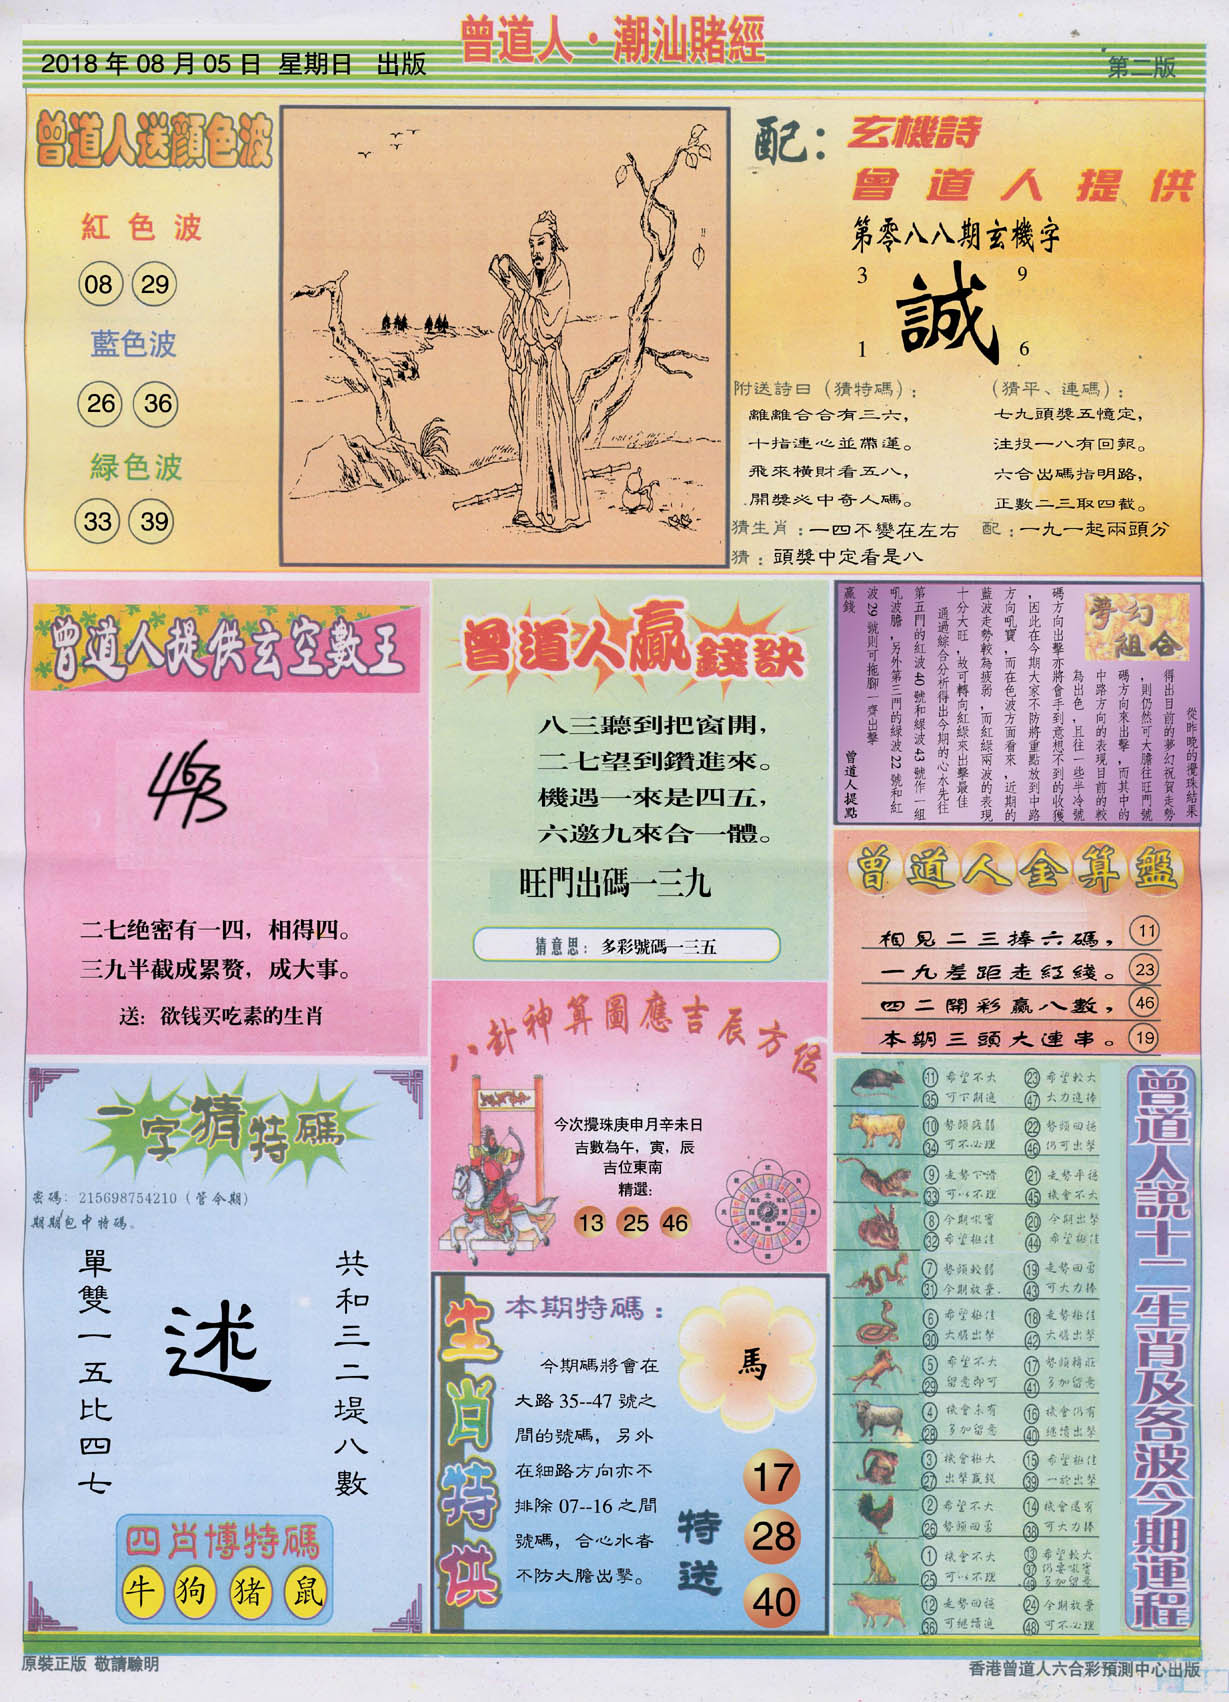 曾道人·潮汕賭經
2018 年 08 月 05 日 星期日 出版
第二版
曾道人送顏色波
紅色波
08 29
藍色波
26 36
緑色波
33 39
配：玄機詩
曾道人提供
第零八八期玄機字
3 9
誠
1 6
附送詩曰（猜特碼）：
離離合合有三六，
十指連心並帶運。
飛來橫財看五八，
開獎必中奇人碼。
（猜平、連碼）：
七九頭獎五憶定，
注投一八有回報。
六合出碼指明路，
正數二三取四截。
猜生肖：一四不變在左右
配：一九一起兩頭分
猜：頭獎中定看是八
曾道人提供玄空數王
463
二七绝密有一四，相得四。
三九半截成累赘，成大事。
送：欲钱买吃素的生肖
曾道人贏錢訣
八三聽到把窗開，
二七望到鑽進來。
機遇一來是四五，
六邀九來合一體。
旺門出碼一三九
猜意思：多彩號碼一三五
夢幻組合
從昨晚的攪珠結果
得出目前的夢幻祝賀走勢
，則仍然可大膽往旺門號
碼方向來出擊，而其中的
中路方向的表現目前的較
為出色，且往一些半冷號
碼方向出擊亦將會手到意想不到的收獲
，因此在今期大家不防將重點放到中路
方向吼寶，而在色波方面看來，近期的
藍波走勢較為疲弱，而紅綠兩波的表現
十分大旺，故可轉向紅綠來出擊最佳
通過綜合分析得出今期的心水先往
第五門的紅波 40 號和綠波 43 號作一組
吼波膽，另外第三門的綠波 22 號和紅
波 29 號則可拖腳一齊出擊
贏錢
曾道人提點
曾道人金算盤
相見二三捧六碼， 11
一九差距走紅綫。 23
四二開彩贏八數， 46
本期三頭大連串。 19
八卦神算圖應吉辰方位
今次攪珠庚申月辛未日
吉數為午，寅，辰
吉位東南
精選：
13 25 46
一字猜特碼
密碼：215698754210（管令期）
期期包中特碼。
單雙一五比四七
述
共和三二堤八數
四肖博特碼
牛 狗 猪 鼠
生肖特供
本期特碼：
今期碼將會在
大路 35--47 號之
間的號碼，另外
在細路方向亦不
排除 07--16 之間
號碼，合心水者
不防大膽出擊。
馬
特送
17
28
40
曾道人說十二生肖及各波今期運程
11 希望不大 23 希望較大
35 可下期進 47 大力進捧
10 勢頭疲弱 22 勢頭回穩
34 可不必理 46 仍可出擊
9 走勢下滑 21 走勢平穩
33 可以不理 45 機會不大
8 今期吼寶 20 今期出擊
32 希望極佳 44 希望極佳
7 勢頭較弱 19 走勢回勇
31 今期放棄. 43 可大力捧
6 機會極佳 18 走勢極佳
30 大膽出擊 42 大膽出擊
5 希望不大 17 勢頭轉旺
29 留意即可 41 多加留意
4 機會未有 16 機會仍有
28 多加留意 40 繼續出擊
3 機會極大 15 希望極佳
27 出擊贏錢 39 一於出擊
2 希望不大 14 機會還有
26 勢頭回勇 38 可大力捧
1 機會不大 13 希望較大
25 可以不理 37 仍要吼寶
49 多加留意
12 走勢回穩 24 今期放棄
36 可繼續進 48 可不必理
原裝正版 敬請驗明
香港曾道人六合彩預測中心出版